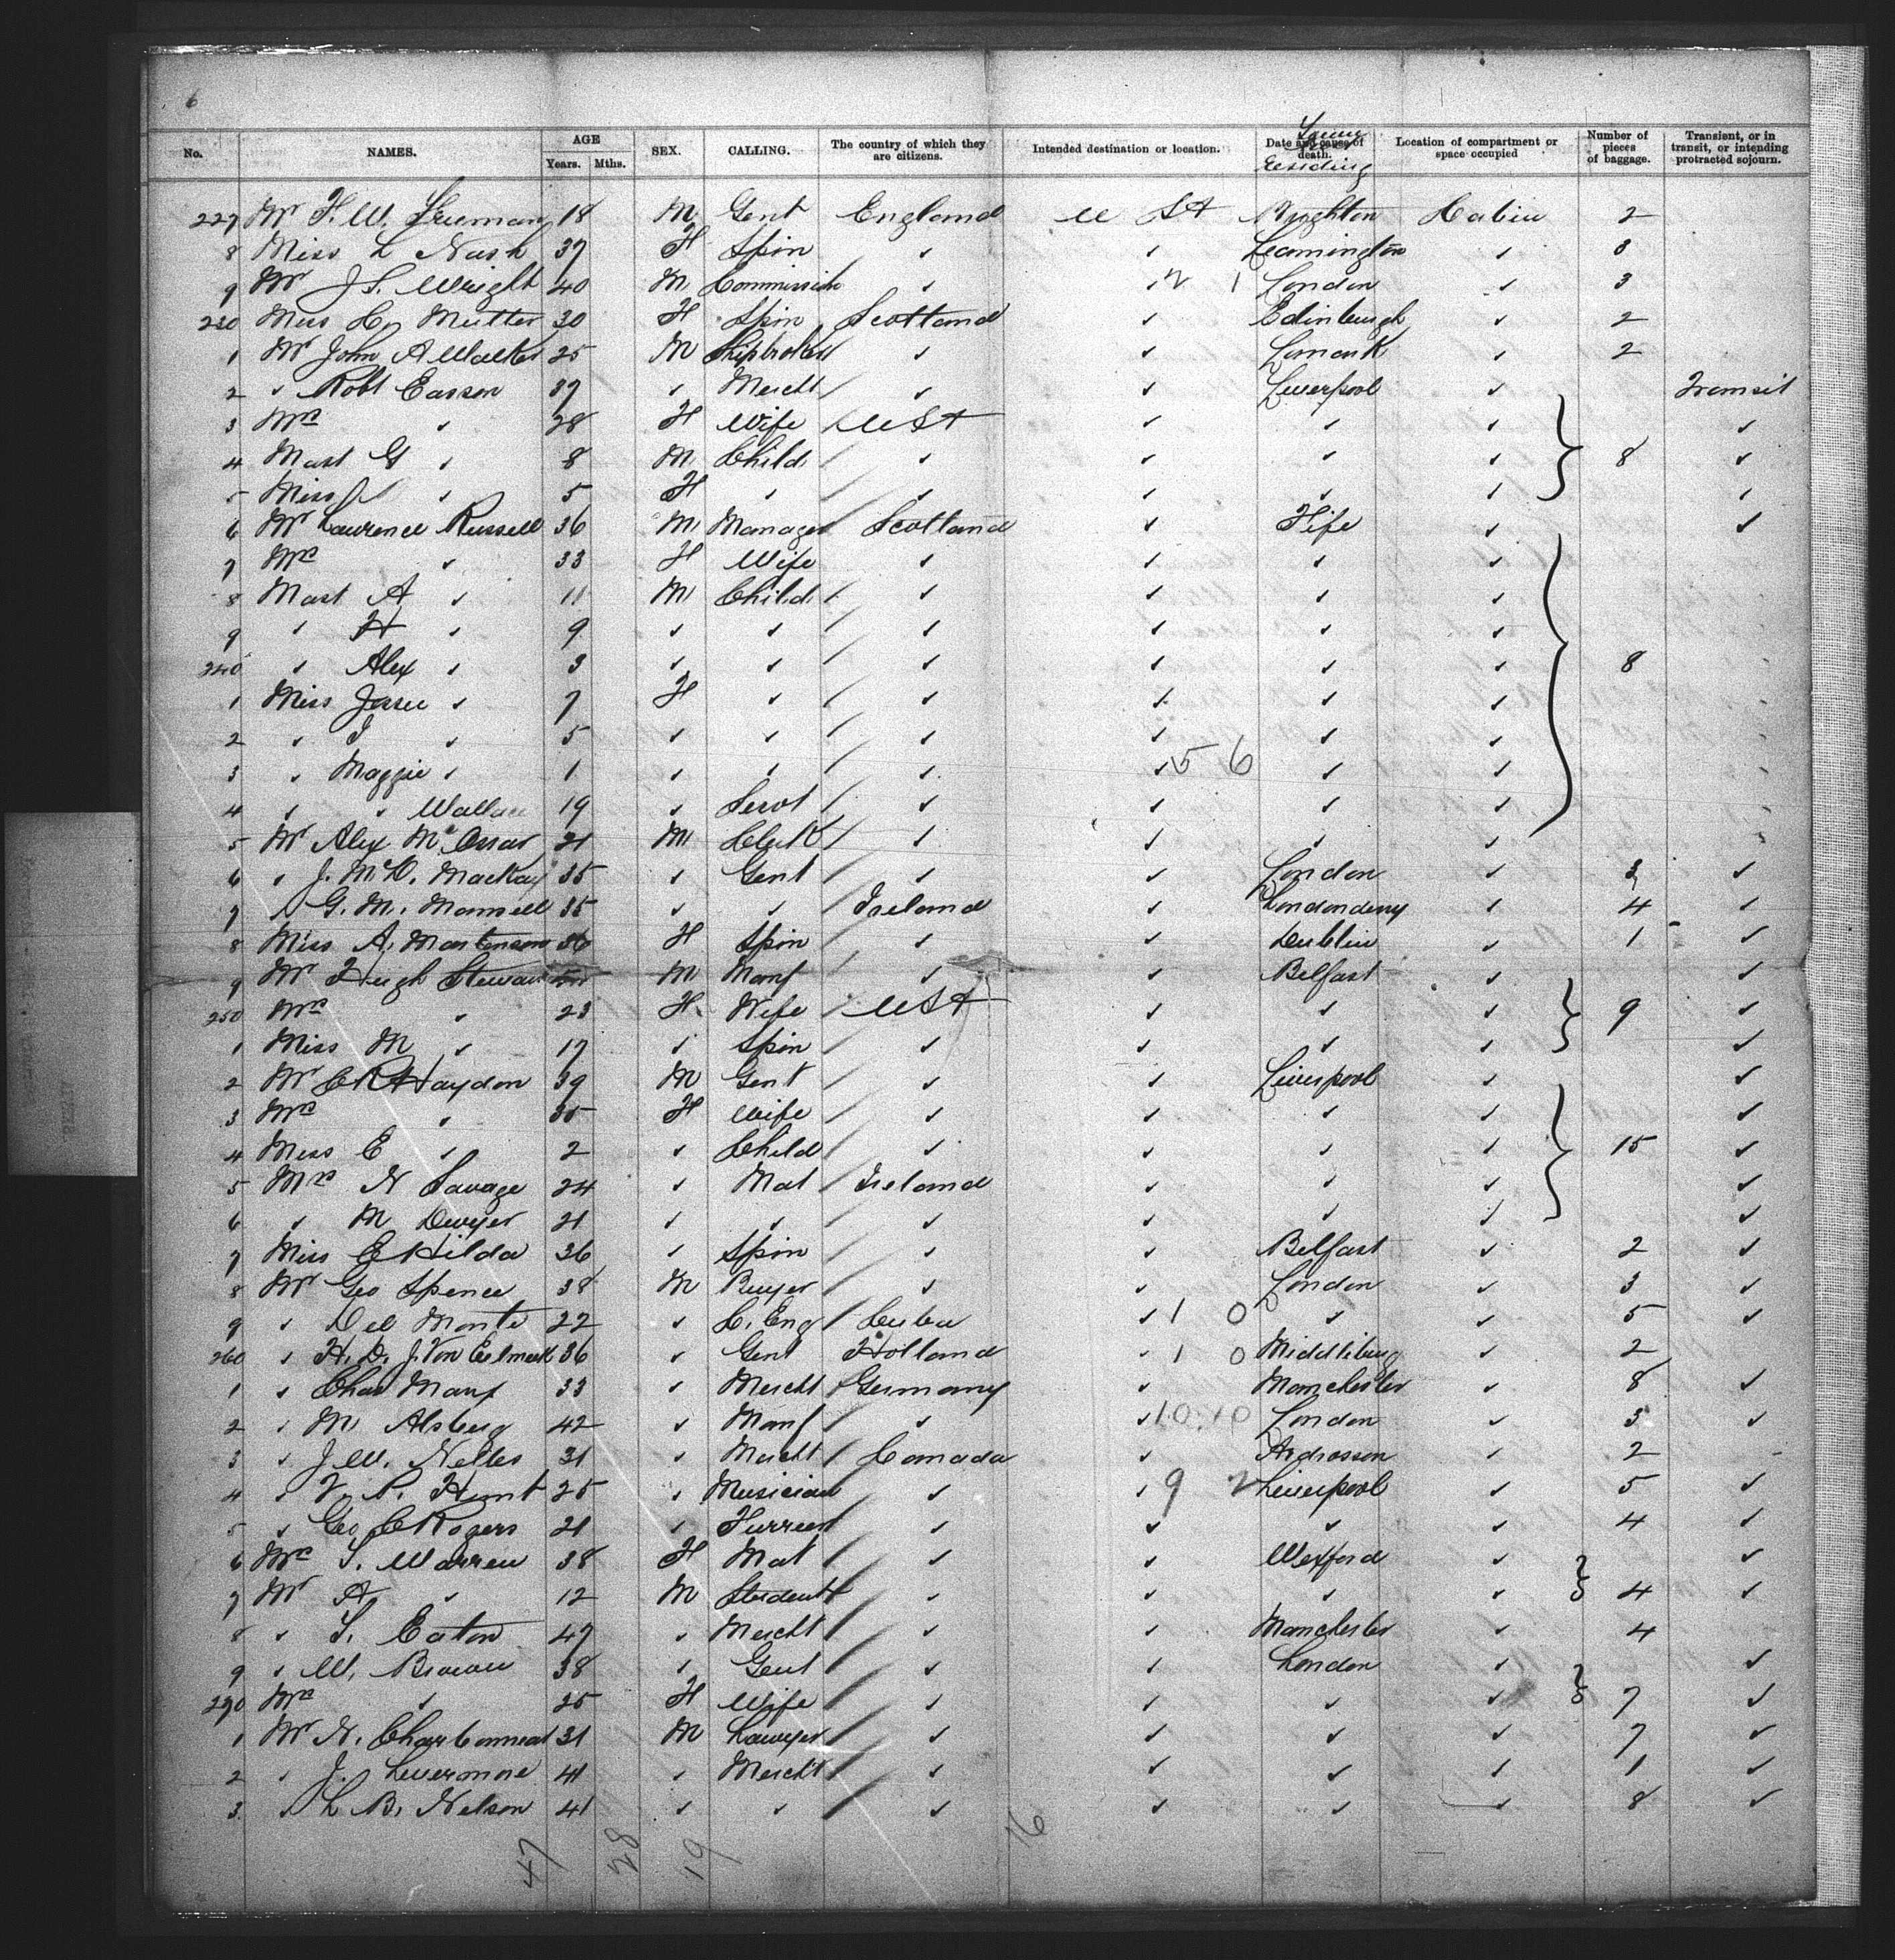 6
No. NAMES. AGE Years. Mths. SEX. CALLING. The country of which they are citizens. Intended destination or location. Date and cause of death. Residing Location of compartment or space occupied Number of pieces of baggage. Transient, or in transit, or intending protracted sojourn.
227 Mr F. W. 18 M Gent England U St Cabin 2
8 Miss L Nash 37 F Spin ✓ ✓ Leamington ✓ 3
9 Mr J S. Wright 40 M ✓ ✓ 2 1 London ✓ 3
230 Miss Mutter 30 F Spin Scotland ✓ Edinburgh ✓ 2
1 Mr John A Walker 25 M Shipbroker ✓ ✓ ✓ 2
2 ✓ Robt Easson 37 ✓ Mercht ✓ ✓ Liverpool ✓ Transit
3 Mrs ✓ 28 F Wife U St ✓ ✓ ✓ ✓
4 Mast G ✓ 8 M Child ✓ ✓ ✓ ✓ 8 ✓
5 Miss ✓ 5 F ✓ ✓ ✓ ✓ ✓ ✓
6 Mr Lawrence Russell 36 M Manager Scotland ✓ Fife ✓ ✓
7 Mrs ✓ 33 F Wife ✓ ✓ ✓ ✓
8 Mast A ✓ 11 M Child ✓ ✓ ✓ ✓
9 ✓ H ✓ 9 ✓ ✓ ✓ ✓ ✓ ✓
240 ✓ Alex ✓ 3 ✓ ✓ ✓ ✓ ✓ ✓ 8
1 Miss Jessie ✓ 7 F ✓ ✓ ✓ ✓ ✓
2 ✓ ✓ 5 ✓ ✓ ✓ ✓ ✓ ✓
3 ✓ Maggie ✓ 1 ✓ ✓ ✓ ✓ 5 6 ✓ ✓
4 ✓ ✓ Wallace 19 ✓ Servt ✓ ✓ ✓ ✓
5 Mr Alex 21 M Clerk ✓ ✓ ✓ ✓
6 ✓ J. McD. Mackay 35 ✓ Gent ✓ ✓ London ✓ 3 ✓
7 ✓ G. M. 35 ✓ ✓ Ireland ✓ Londonderry ✓ 4 ✓
8 Miss A. Martenson 36 F Spin ✓ ✓ Dublin ✓ 1 ✓
9 Mr Hugh Stewart M Manf ✓ ✓ Belfast ✓ ✓
250 Mrs ✓ 23 F Wife U St ✓ ✓ ✓ 9 ✓
1 Miss M ✓ 17 ✓ Spin ✓ ✓ ✓ ✓ ✓
2 Mr C R Haydon 39 M Gent ✓ ✓ Liverpool ✓ ✓
3 Mrs ✓ 35 F Wife ✓ ✓ ✓ ✓ ✓
4 Miss E ✓ 2 ✓ Child ✓ ✓ ✓ ✓ 15 ✓
5 Mrs N Savage 24 ✓ Mat Ireland ✓ ✓ ✓ ✓
6 ✓ M Dwyer 21 ✓ ✓ ✓ ✓ ✓ ✓ ✓
7 Miss E Hilda 36 ✓ Spin ✓ ✓ Belfast ✓ 2 ✓
8 Mr Geo Spence 38 M Buyer ✓ ✓ London ✓ 3 ✓
9 ✓ Del Monte 22 ✓ C. Eng Cuba ✓ 1 0 ✓ ✓ 5 ✓
260 ✓ H. D. J. Van 36 ✓ Gent Holland ✓ 1 0 Middleburg ✓ 2
1 ✓ Chas Manf 33 ✓ Mercht Germany ✓ Manchester ✓ 8 ✓
2 ✓ M Alsberg 42 ✓ Manf ✓ ✓ 10 10 London ✓ 3 ✓
3 ✓ J. W. Nelles 31 ✓ Mercht Canada ✓ Ardrossan ✓ 2
4 ✓ Hunt 25 ✓ Musician ✓ ✓ 9 2 Liverpool ✓ 5 ✓
5 ✓ Geo C Rogers 21 ✓ Furrier ✓ ✓ ✓ ✓ 4 ✓
6 Mrs S. Warren 38 F Mat ✓ ✓ Wexford ✓ ✓
7 Mr A ✓ 12 M Student ✓ ✓ ✓ ✓ 4 ✓
8 ✓ S. Eaton 47 ✓ Mercht ✓ ✓ Manchester ✓ 4
9 ✓ W. Brown 38 ✓ Gent ✓ ✓ London ✓ ✓
270 Mrs ✓ 25 F Wife ✓ ✓ ✓ ✓ 7 ✓
1 Mr N. Charbonneau 31 M Lawyer ✓ ✓ ✓ ✓ 7 ✓
2 ✓ J. Livermore 41 ✓ Mercht ✓ ✓ ✓ ✓ 1 ✓
3 ✓ L B. Nelson 41 ✓ ✓ ✓ ✓ ✓ ✓ 8 ✓
47 28 19 16